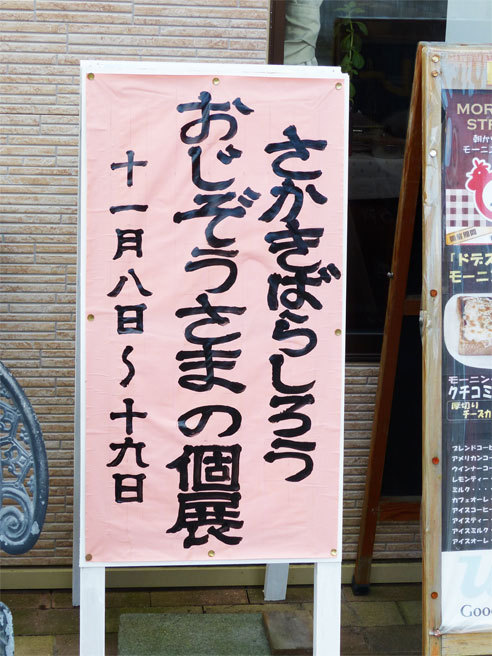 さかきばらしろう
おじぞうさまの個展
十一月八日~十六日
MOR
STR
モーニン
「ドデス
モーニ
モーニン
クチコミ
厚切り
チーズカ
ブレンドコーヒ
アメリカンコー
ウインナーコー
レモンティー・
ミルク・・・・
カフェオーレ・
アイスコーヒー
アイスティー・
アイスミルク・
アイスオーレ・
Goo